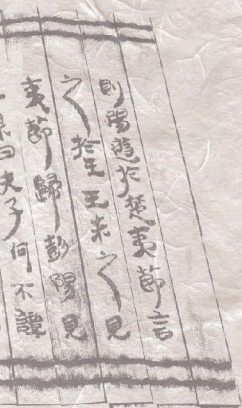 則陽遊於楚夷節言
之於王王未之見
夷節歸彭陽見
果曰夫子何不譚